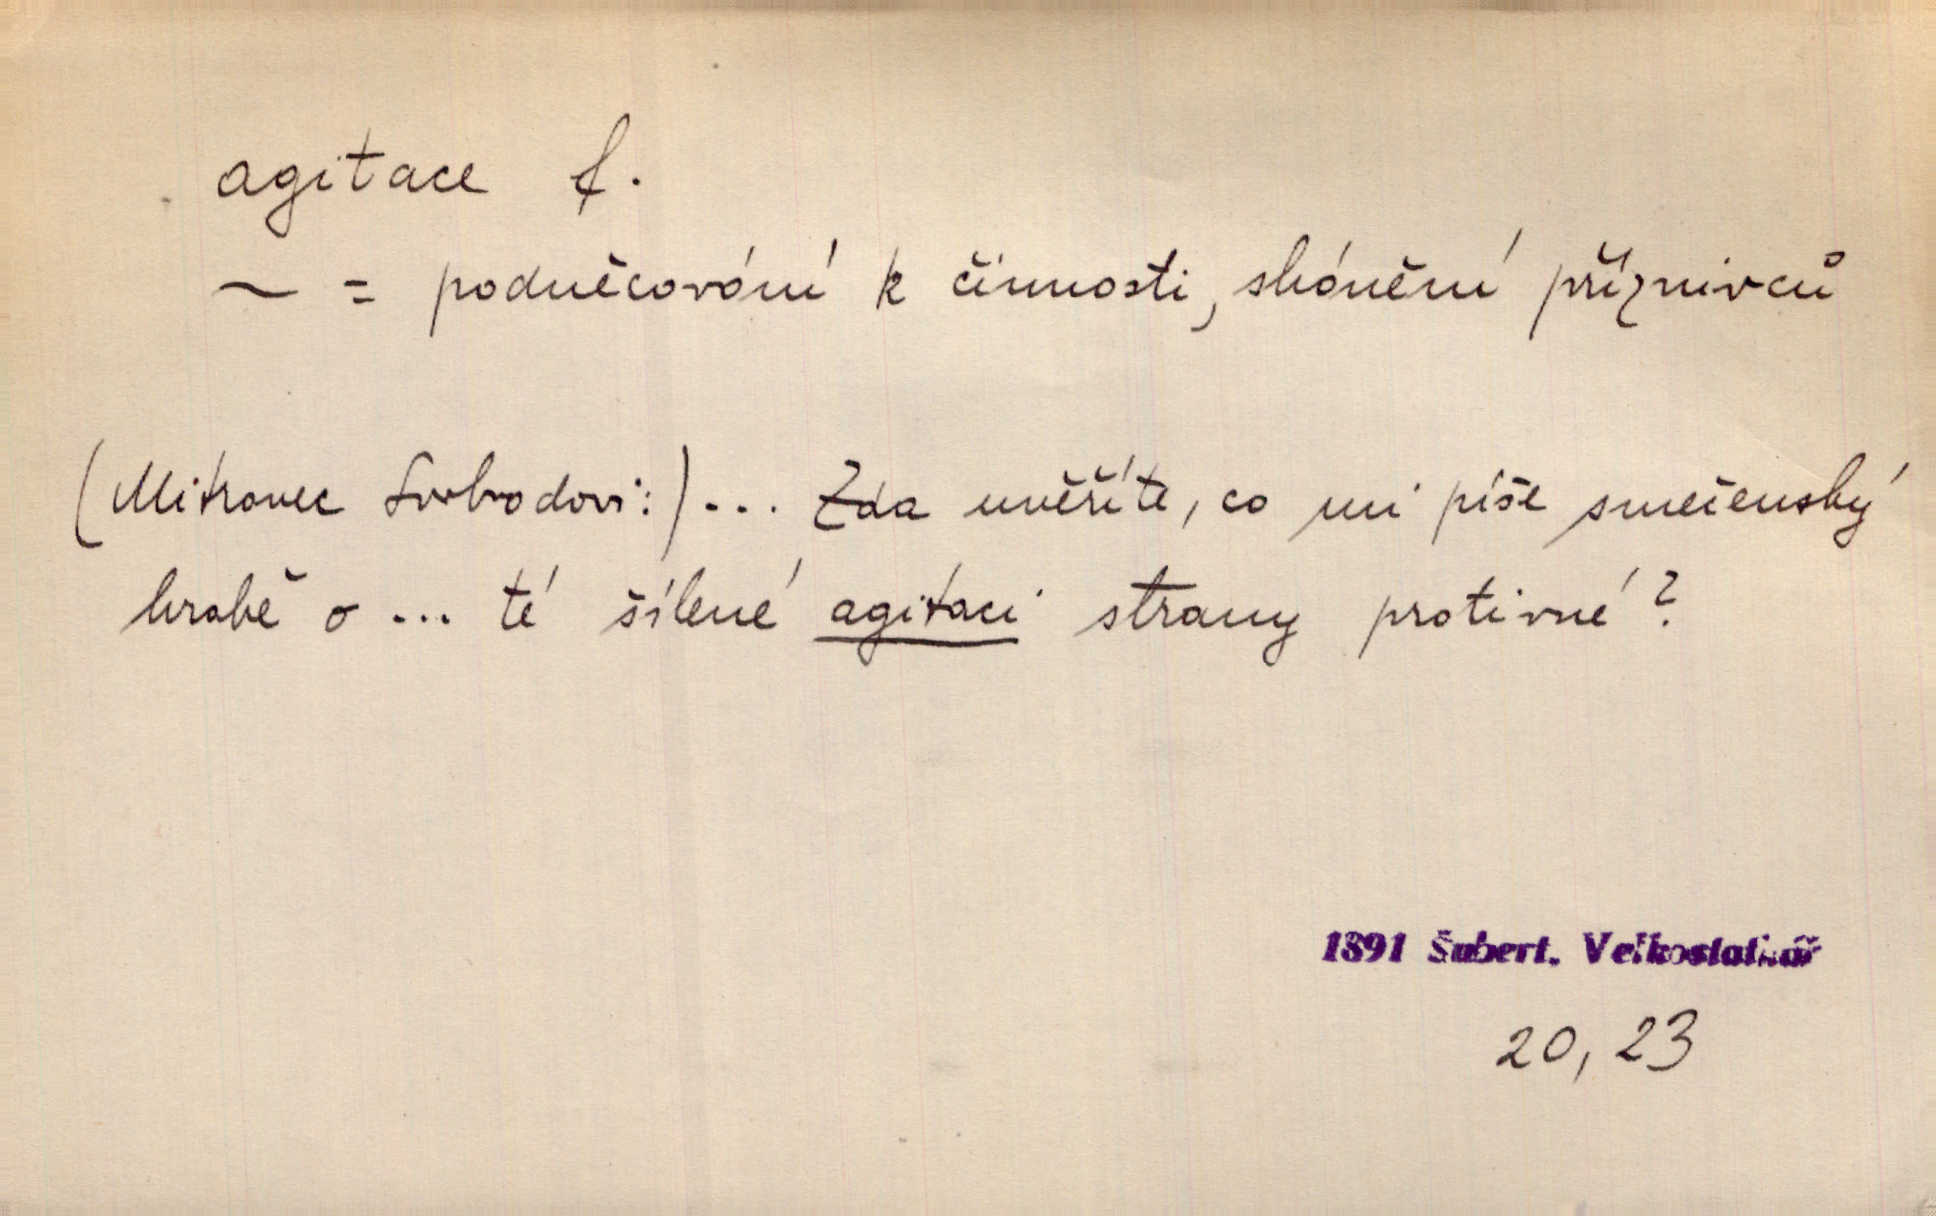 agitace f.
~ = podněcování k činnosti, shánění příznivců
(Mitrovec Svobodovi:) ... Zda uvěříte, co mi píše smečenský
hrabě o ... té šílené agitaci strany protivné?
1891 Šubert. Velkostatkář
20, 23